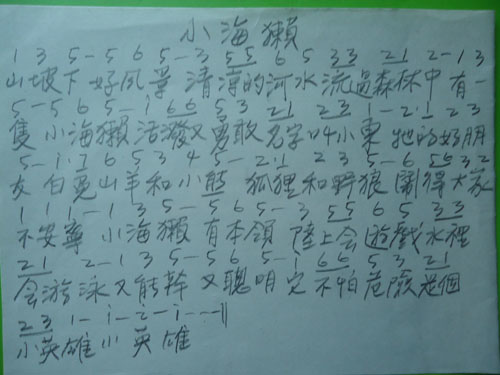 小海獺
1 3 5 - 5 6 5 - 3 5 5 6 5 3 3 2 1 2 - 1 3
山坡下好風景清淨的河水流過森林中有一
5 - 5 6 5 - i 6 6 5 3 2 1 2 3 1 - 2 1 2 3
隻小海獺活潑又勇敢名字叫小東牠的好朋
5 - i 5 3 4 5 - 2 1 2 3 5 - 6 5 6 3 2
友白兔山羊和小熊狐狸和野狼鬧得大家
1 1 1 - 1 3 5 - 5 6 5 - 3 5 5 6 5 3 3
不安寧小海獺有本領陸上會遊戲水裡
2 1 2 - 1 3 5 - 5 6 5 - i 6 6 5 3 2 1
會游泳又能幹又聰明它不怕危險是個
2 3 1 - i - 2 - i - - -
小英雄小英雄